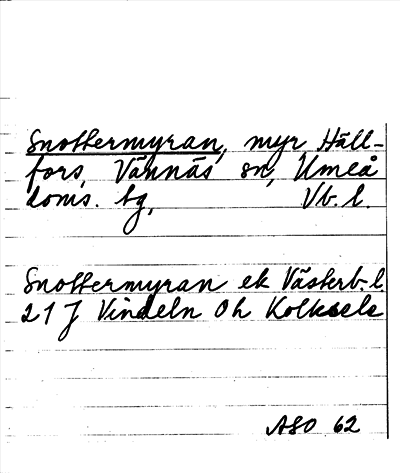 Snottermyran, myr, Häll-
fors, Vännäs sn, Umeå
doms. tg, Vb. l.
Snottermyran ek Västerb. l.
21 J Vindeln Oh Kolksele
ASO 62